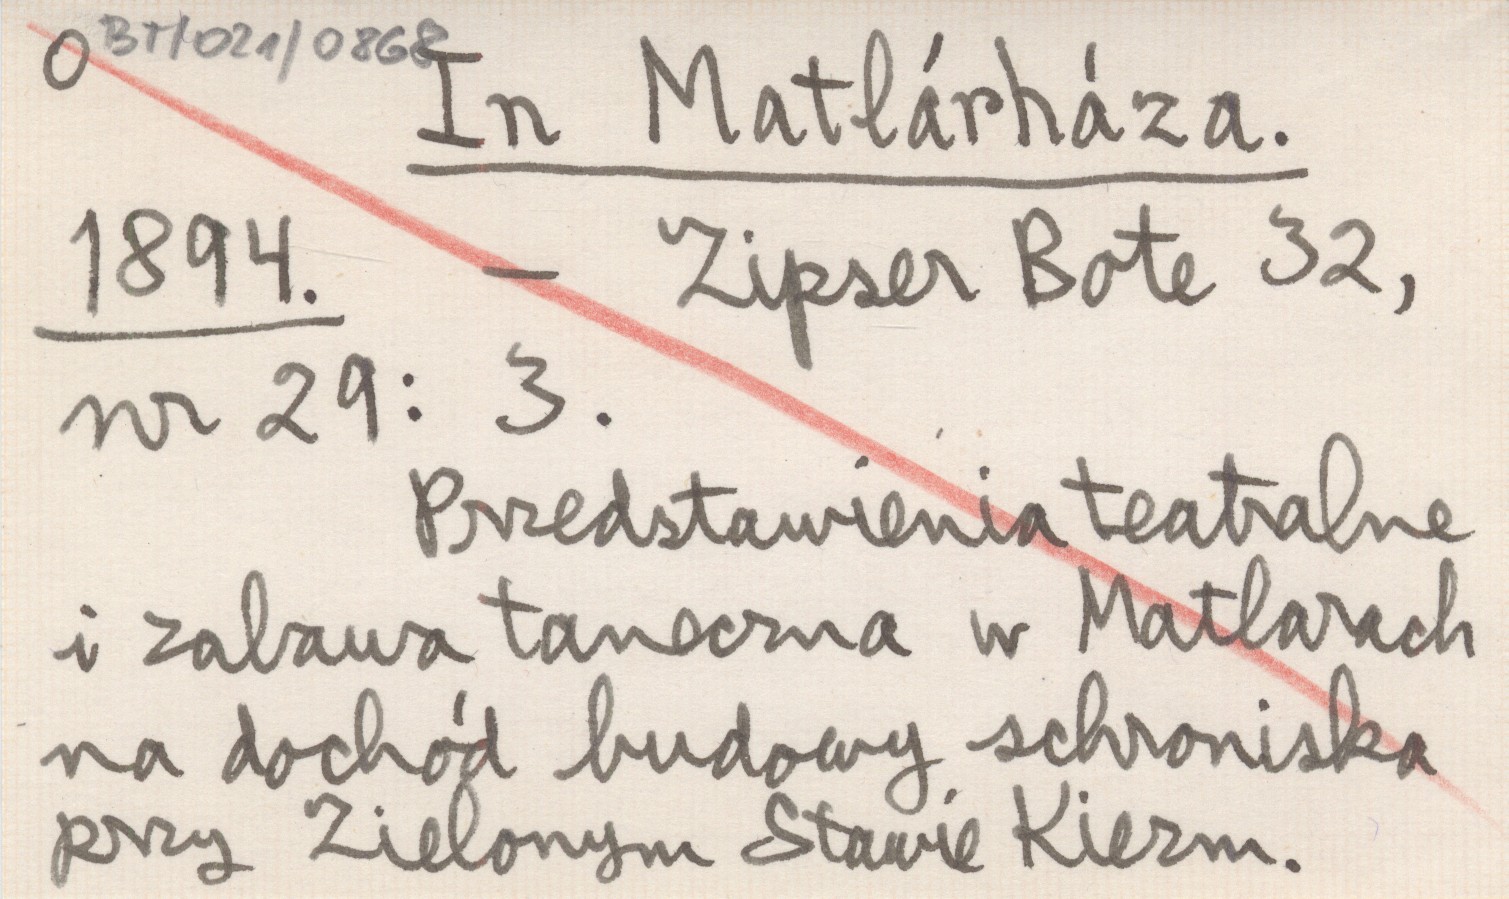 O BT/021/0868
In Matlárháza.
1894. — Zipser Bote 32,
nr 29: 3.
Przedstawienia teatralne
i zabawa taneczna w Matlarach
na dochód budowy schroniska
przy Zielonym Stawie Kiezm.